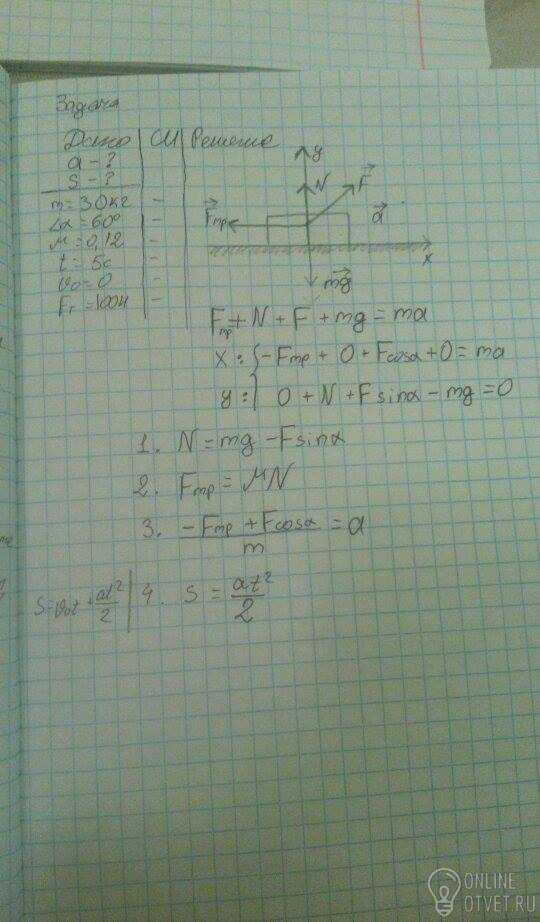 Задача
Дано СИ Решение
a - ?
S - ?
m = 30кг -
∠α = 60° -
μ = 0,12 -
t = 5с -
v₀ = 0 -
Fт = 100н -
y
N
F
Fтр
a
x
mg
Fтр + N + F + mg = ma
x: { -Fтр + 0 + Fcosα + 0 = ma
y: { 0 + N + Fsinα - mg = 0
1. N = mg - Fsinα
2. Fтр = μN
3. (-Fтр + Fcosα)/m = a
S = v₀t + at²/2 | 4. S = at²/2
ONLINE
OTVET.RU